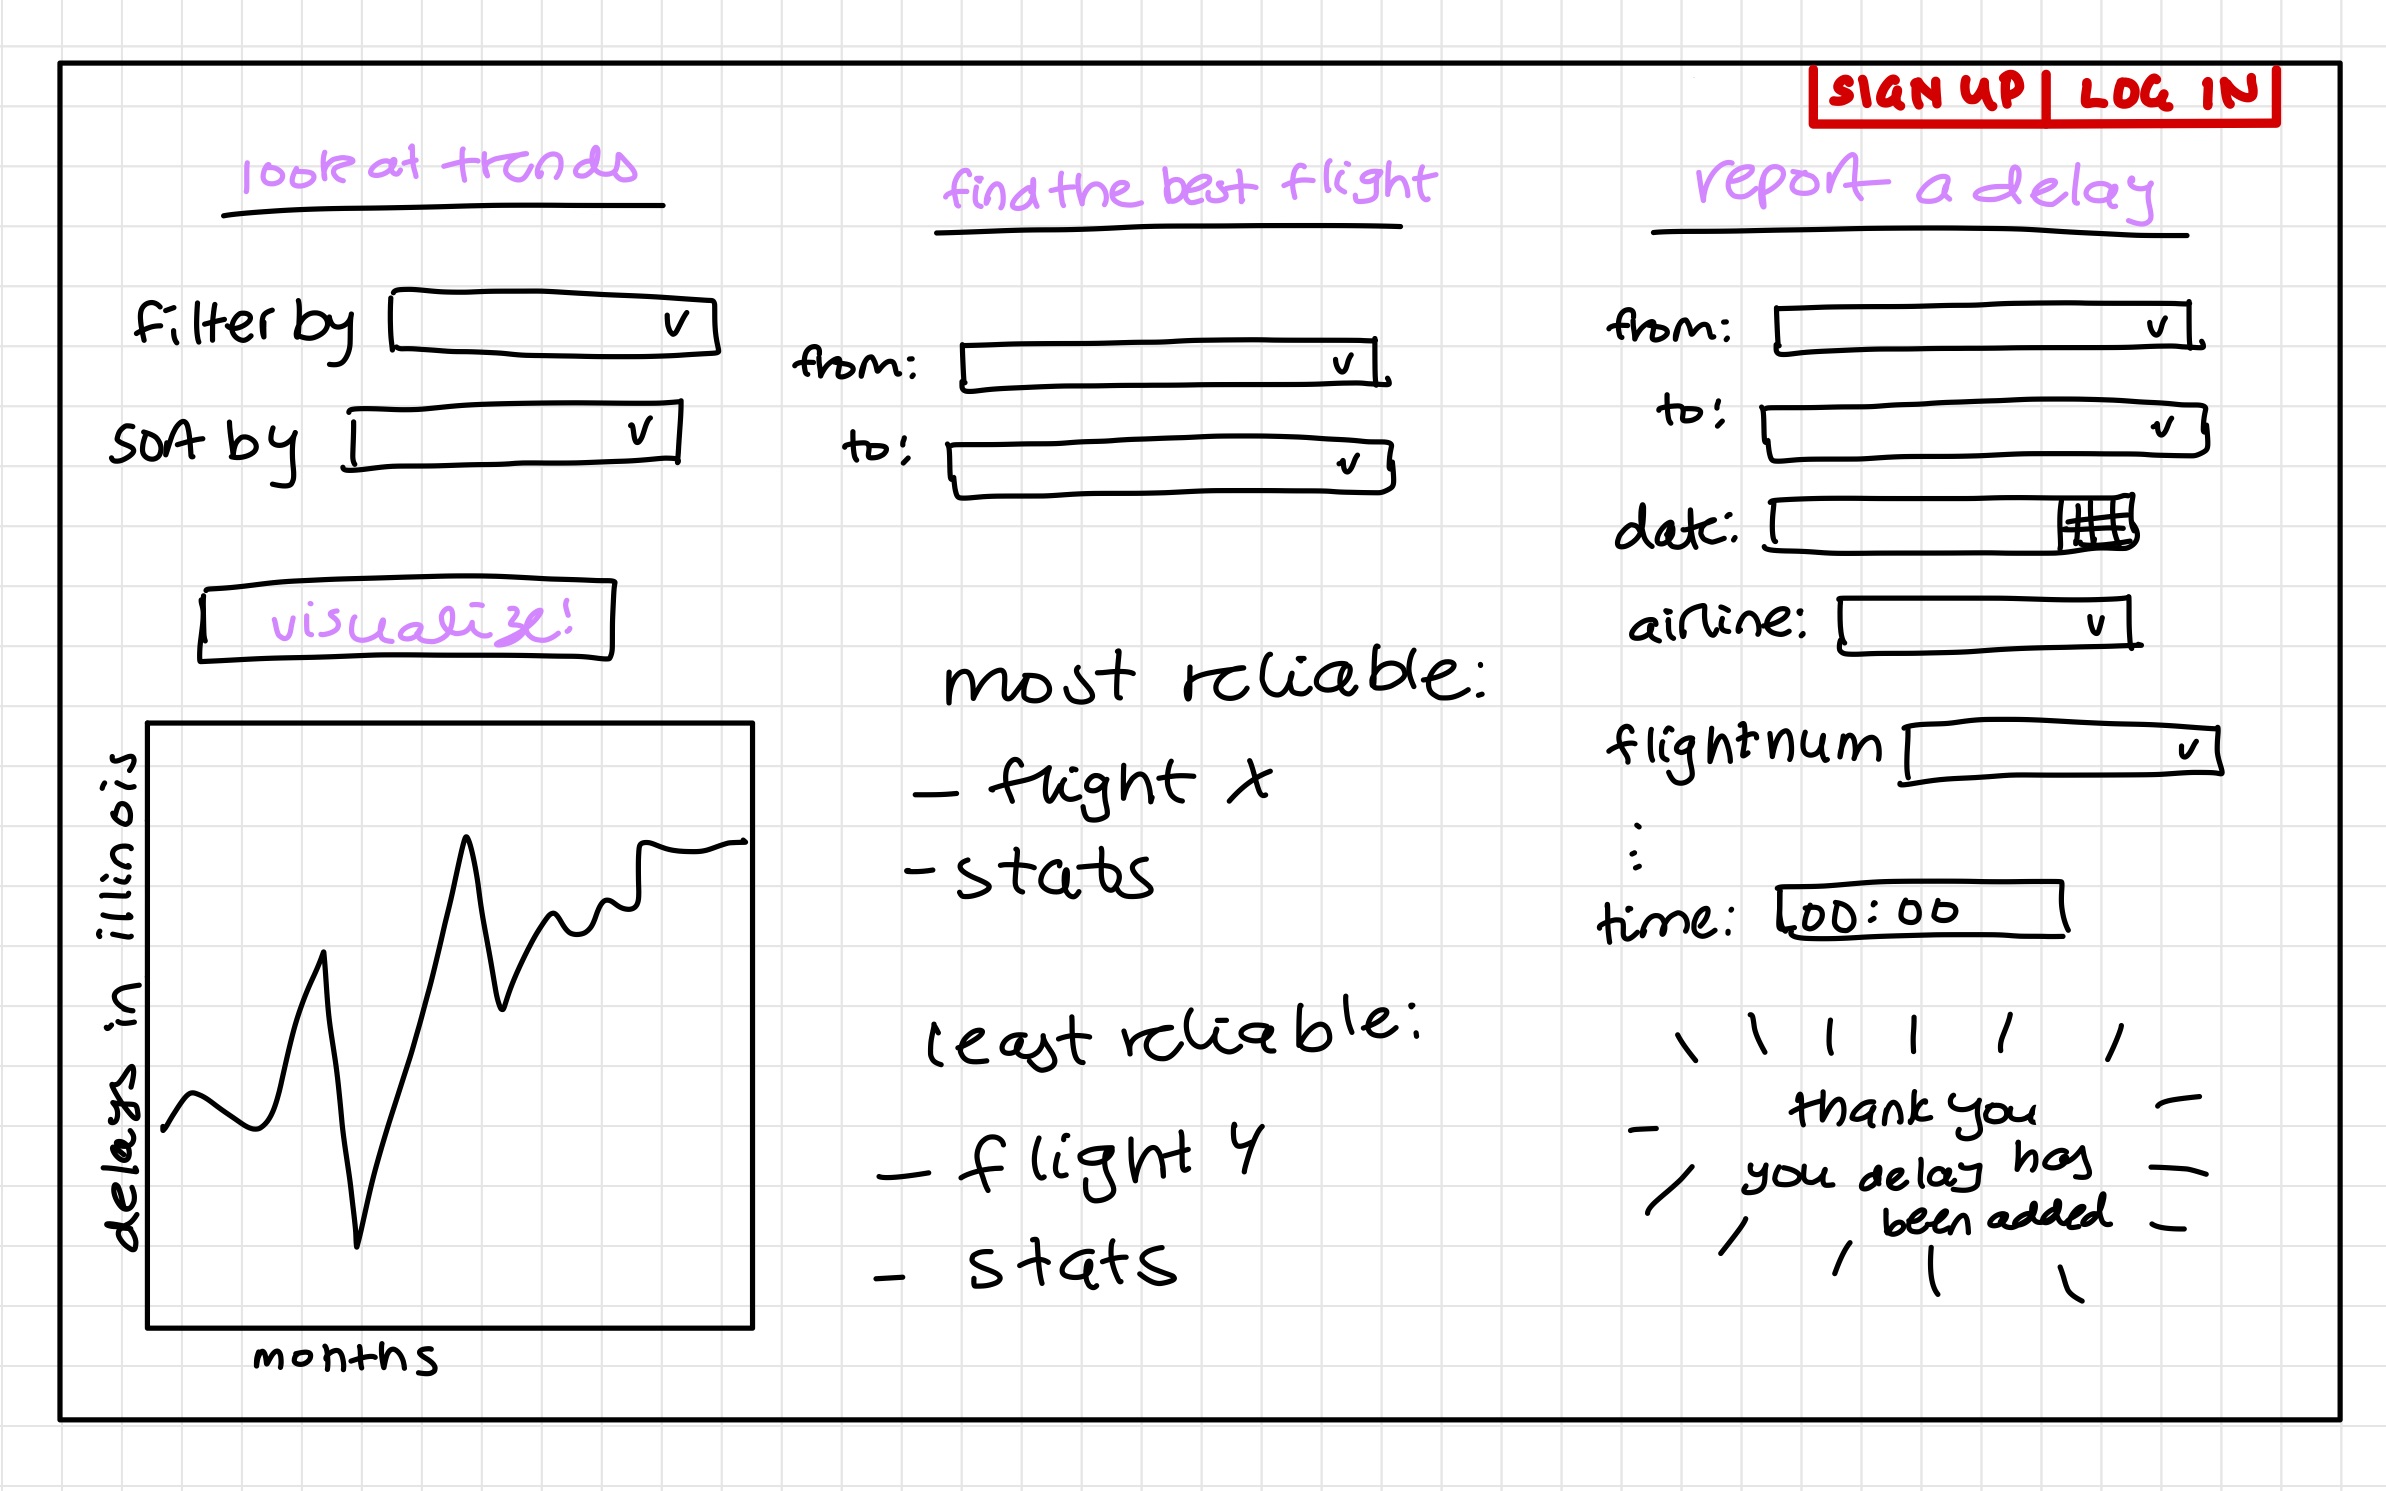 SIGN UP | LOG IN
look at trends
filter by
sort by
visualize!
delays in illinois
months
find the best flight
from:
to:
most reliable:
- flight x
- stats
least reliable:
- flight y
- stats
report a delay
from:
to:
date:
airline:
flightnum
time: 00:00
thank you
you delay has
been added